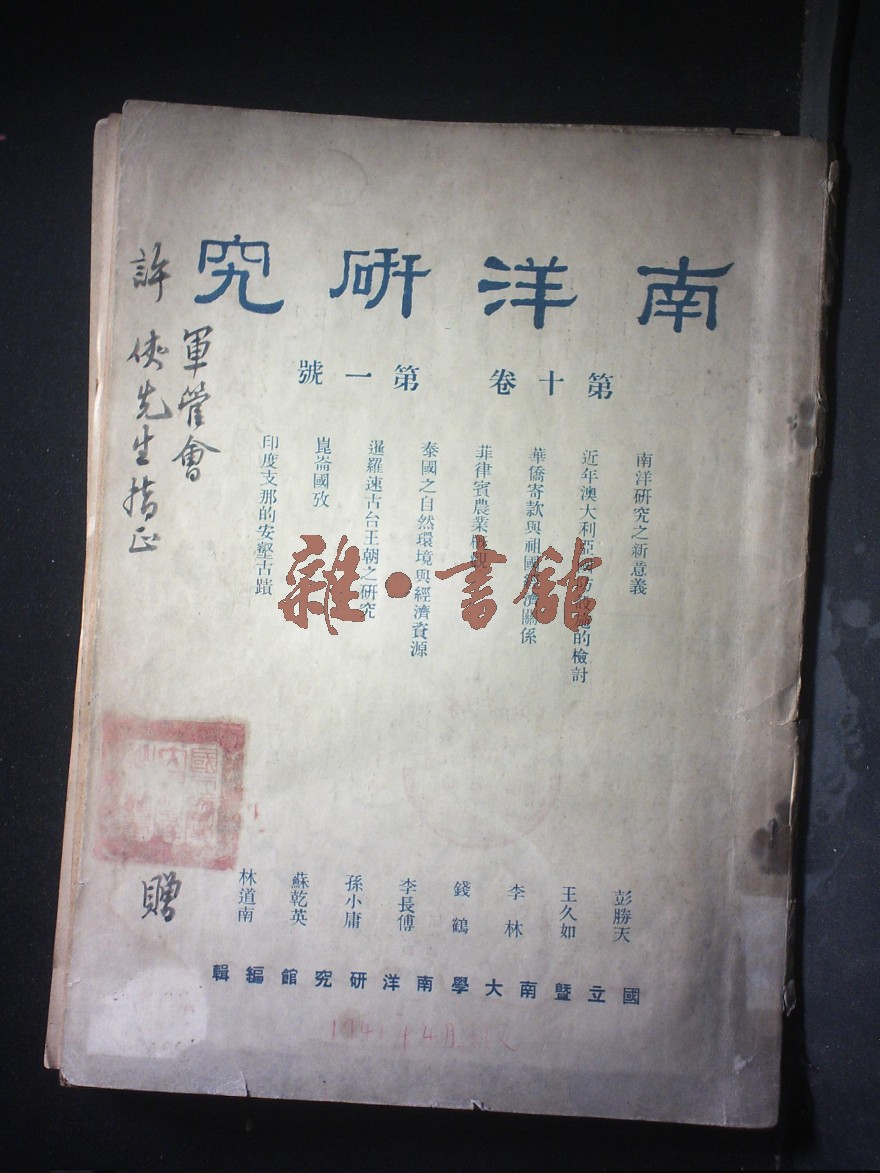 南洋研究
第十卷 第一號
南洋研究之新意義
近年澳大利亞的檢討
華僑寄款與祖國經濟關係
菲律賓農業概觀
泰國之自然環境與經濟資源
暹羅速古台王朝之研究
崑崙國攷
印度支那的安壑古蹟
彭勝天
王久如
李林
錢鶴
李長傅
孫小庸
蘇乾英
林道南
國立暨南大學南洋研究館編輯
軍管會
許俠先生指正
贈
雜·書館